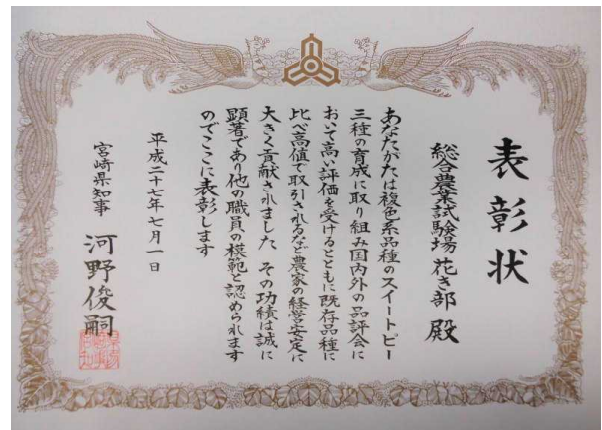 表彰状
総合農業試験場 花き部 殿
あなたがたは複色系品種のスイートピー
三種の育成に取り組み国内外の品評会に
おいて高い評価を受けるとともに既存品種に
比べ高値で取引されるなど農家の経営安定に
大きく貢献されました その功績は誠に
顕著であり他の職員の模範と認められます
のでここに表彰します
平成二十七年七月一日
宮崎県知事 河野俊嗣